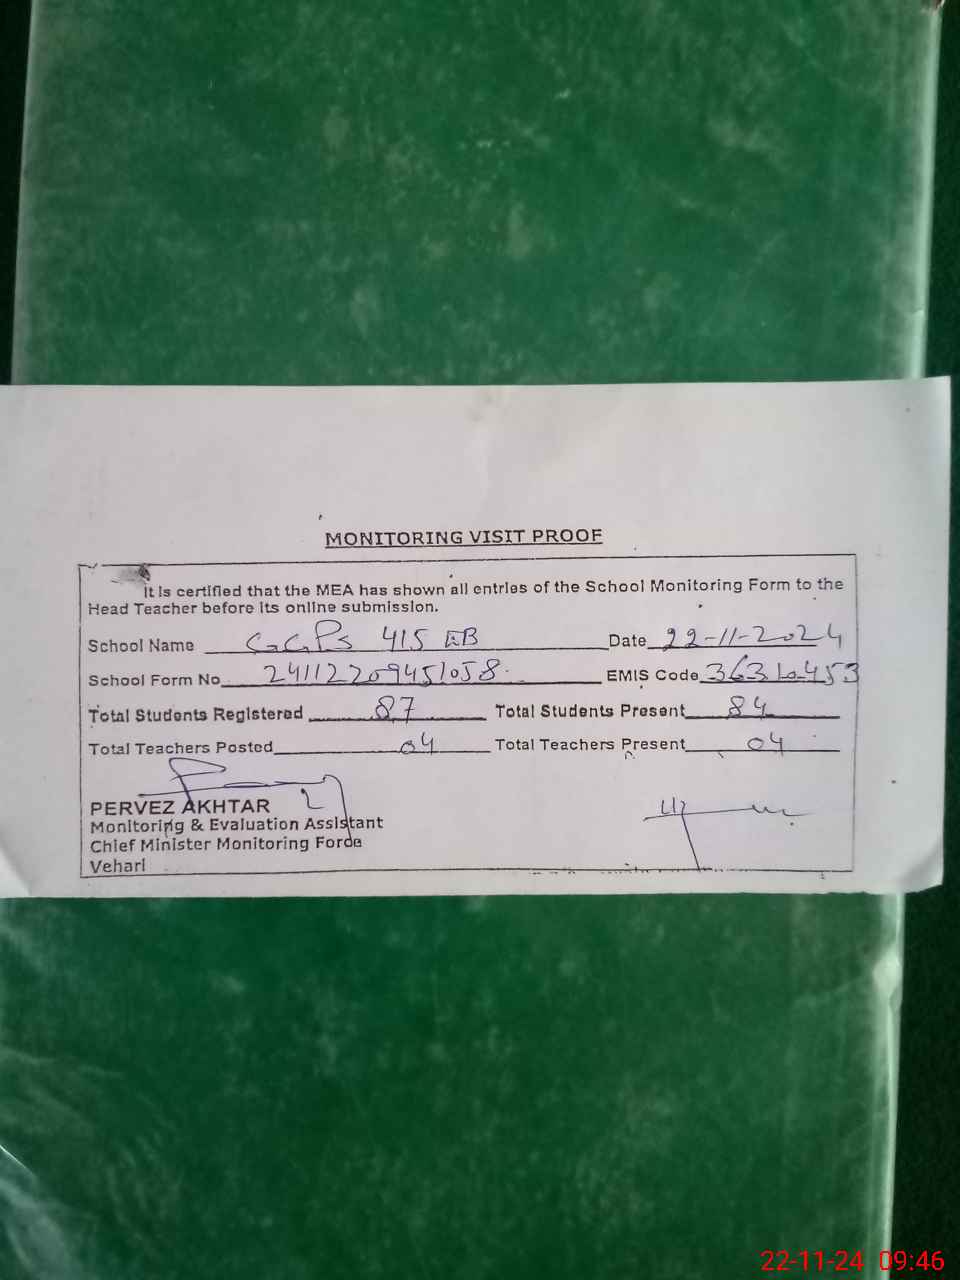 MONITORING VISIT PROOF
It is certified that the MEA has shown all entries of the School Monitoring Form to the
Head Teacher before its online submission.
School Name GGPS 415 EB Date 22-11-2024
School Form No 24112209451058 EMIS Code 36310453
Total Students Registered 87 Total Students Present 84
Total Teachers Posted 04 Total Teachers Present 04
PERVEZ AKHTAR
Monitoring & Evaluation Assistant
Chief Minister Monitoring Force
Vehari
22-11-24 09:46